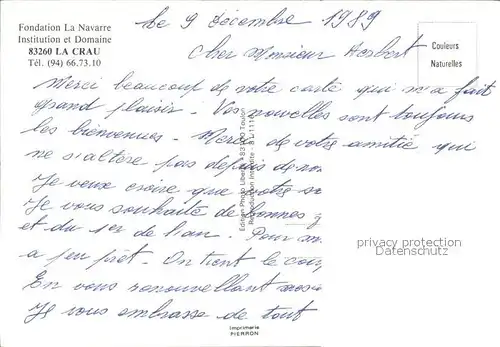 Fondation La Navarre
Institution et Domaine
83260 LA CRAU
Tél. (94) 66.73.10
Le 9 Décembre 1989
Cher Monsieur Herbert
Couleurs
Naturelles
Merci beaucoup de votre carte qui m'a fait
grand plaisir. Vos nouvelles sont toujours
les bienvenues. Merci de votre amitié qui
ne s'altère pas depuis de
Je veux croire que votre
Je vous souhaite de bonnes
et du 1er de l'an. Pour
a peu prêt. On tient le
En vous renouvellant
Je vous embrasse de tout
Edition Photo Liberté 83100 Toulon
Reproduction Interdite
privacy protection
Datenschutz
Imprimerie
PIERRON